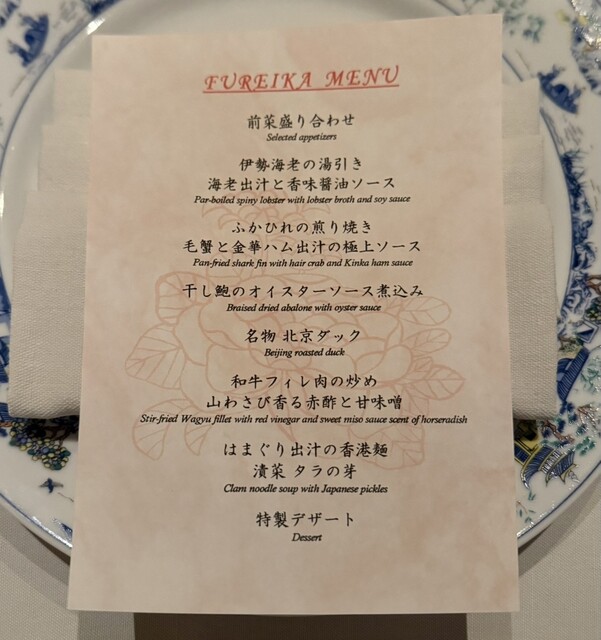 FUREIKA MENU
前菜盛り合わせ
Selected appetizers
伊勢海老の湯引き
海老出汁と香味醤油ソース
Par-boiled spiny lobster with lobster broth and soy sauce
ふかひれの煎り焼き
毛蟹と金華ハム出汁の極上ソース
Pan-fried shark fin with hair crab and Kinka ham sauce
干し鮑のオイスターソース煮込み
Braised dried abalone with oyster sauce
名物 北京ダック
Beijing roasted duck
和牛フィレ肉の炒め
山わさび香る赤酢と甘味噌
Stir-fried Wagyu fillet with red vinegar and sweet miso sauce scent of horseradish
はまぐり出汁の香港麺
漬菜 タラの芽
Clam noodle soup with Japanese pickles
特製デザート
Dessert